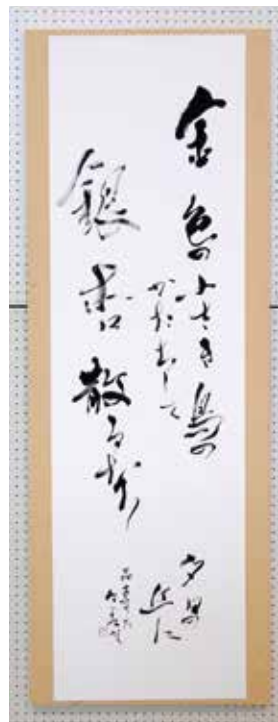 金色の小さき鳥の
かたちして
銀杏散るなり
夕日の
丘に